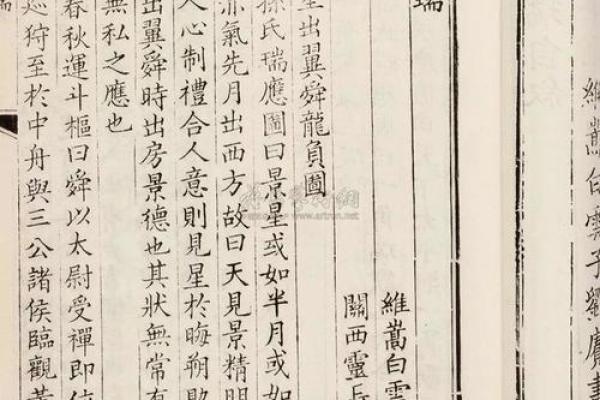 維嵩白雲子劉賡
瑞
維嵩白雲
關西靈
星出翼舜龍負圖
孫氏瑞應圖曰景星或如半月或如
赤氣先月出西方故曰天見景精明
人心制禮合人意則見星於晦朔助
出翼舜時出房景德也其狀無常有
無私之應也
春秋運斗樞曰舜以太尉受禪即位
巡狩至於中舟與三公諸侯臨觀黃
www.artron.net